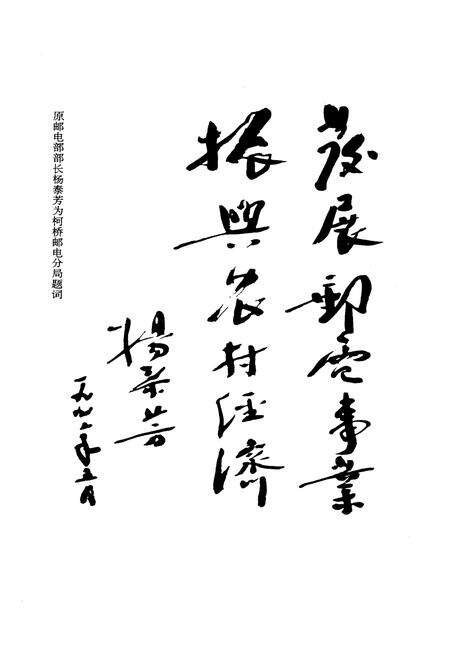 發展郵電事業
振興农村经濟
楊泰芳
一九九一年五月
原邮电部部长杨泰芳为柯桥邮电分局题词